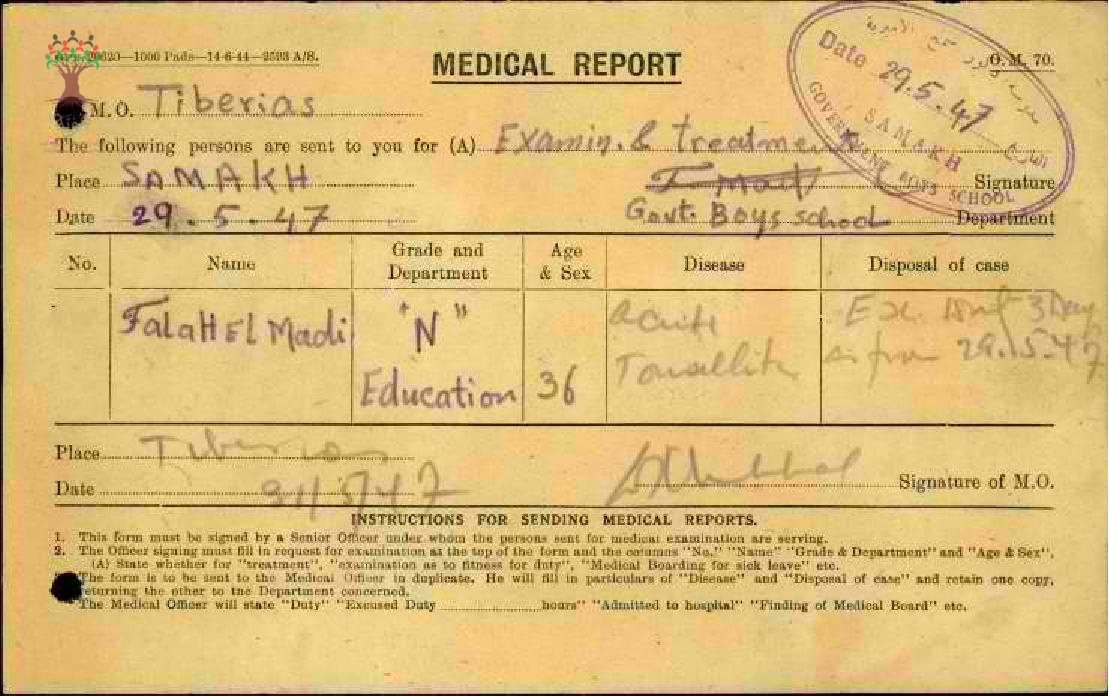 20620—1000 Pads—14-6-44—2593 A/S.
MEDICAL REPORT
O.M. 70.
M.O. Tiberias
The following persons are sent to you for (A) Examin. & treatment
Place SAMAKH
Signature
Date 29.5.47
Govt. Boys school Department
Date 29.5.47
SAMAKH
GOVERNMENT BOYS SCHOOL
التاريخ
No. Name Grade and Department Age & Sex Disease Disposal of case
Falah El Madi "N" Education 36 Acute 3 Day
29.5.47
Place Tiberias
Date 31/5/47
Signature of M.O.
INSTRUCTIONS FOR SENDING MEDICAL REPORTS.
1. This form must be signed by a Senior Officer under whom the persons sent for medical examination are serving.
2. The Officer signing must fill in request for examination at the top of the form and the columns "No." "Name" "Grade & Department" and "Age & Sex".
(A) State whether for "treatment", "examination as to fitness for duty", "Medical Boarding for sick leave" etc.
The form is to be sent to the Medical Officer in duplicate. He will fill in particulars of "Disease" and "Disposal of case" and retain one copy,
returning the other to the Department concerned.
The Medical Officer will state "Duty" "Excused Duty hours" "Admitted to hospital" "Finding of Medical Board" etc.